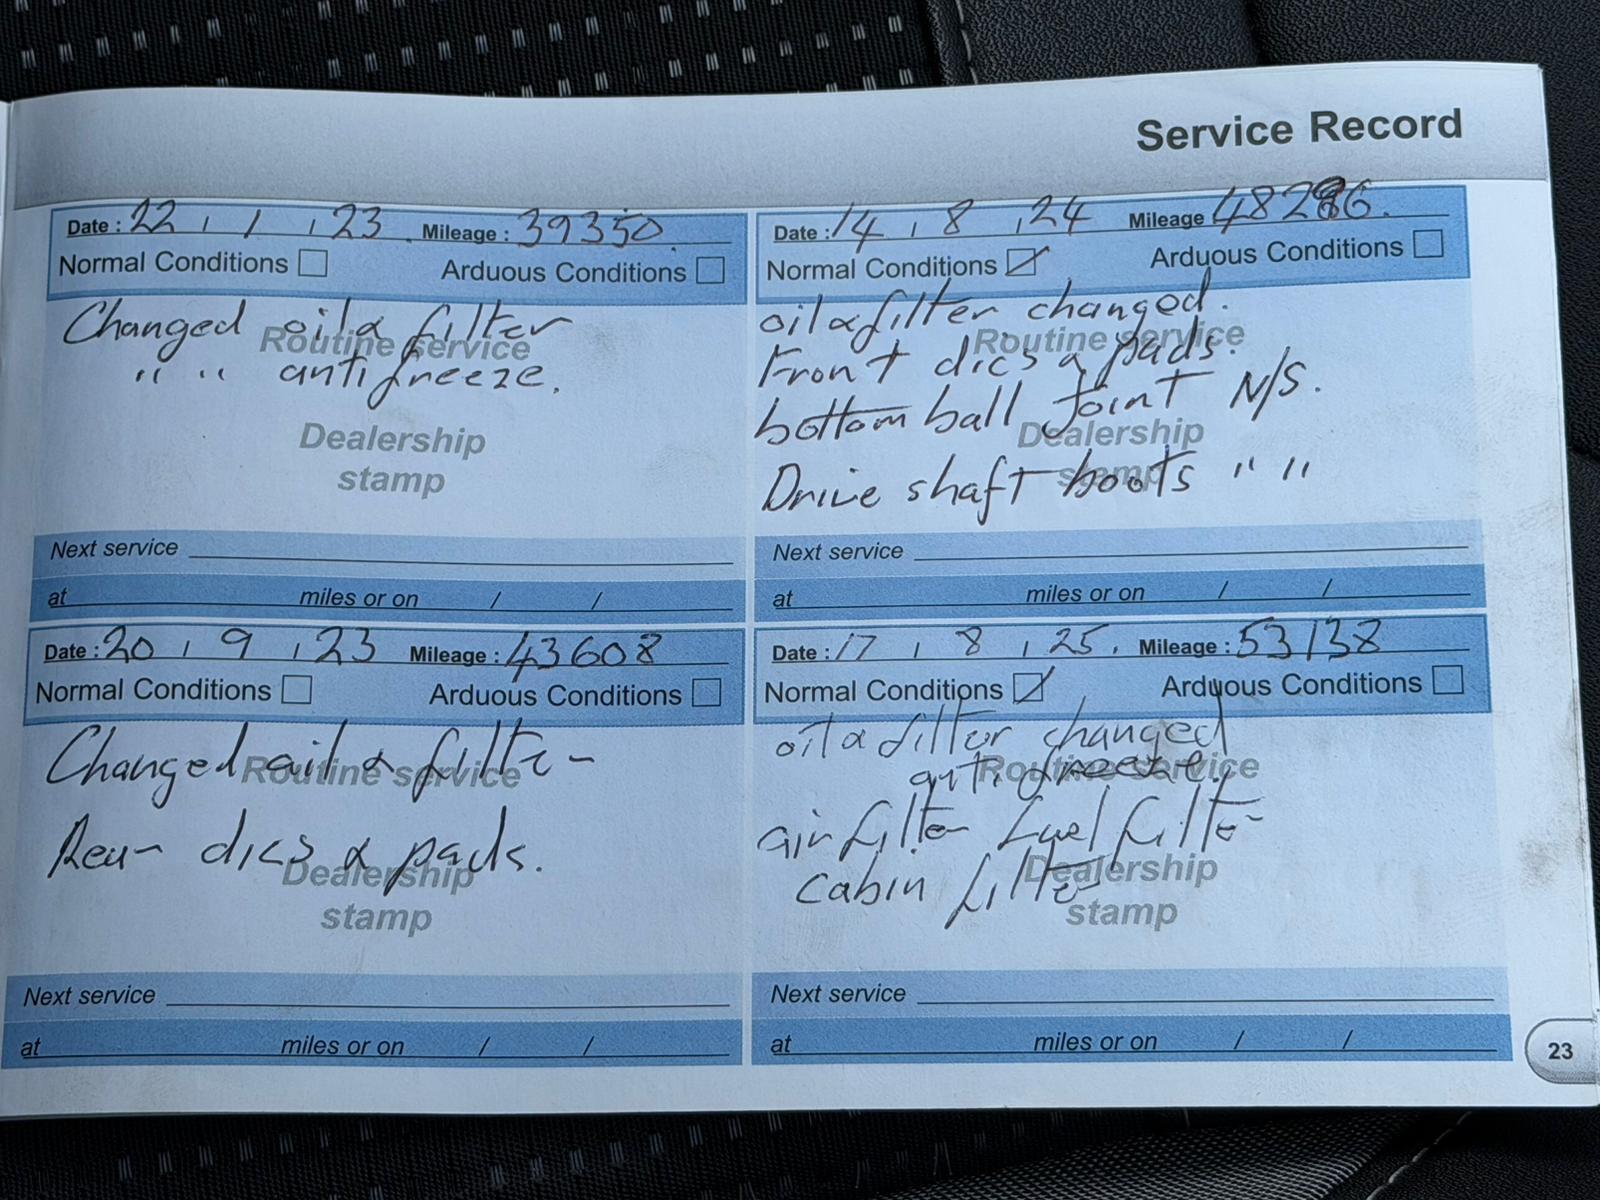 Service Record
Date : 22 / 1 / 23 Mileage : 39350
Normal Conditions Arduous Conditions
Changed oil & filter
Routine service
" " antifreeze.
Dealership
stamp
Next service
at miles or on / /
Date : 20 / 9 / 23 Mileage : 43608
Normal Conditions Arduous Conditions
Changed oil & filter
Routine service
Rear dics & pads.
Dealership
stamp
Next service
at miles or on / /
Date : 14 / 8 / 24 Mileage
Normal Conditions Arduous Conditions
oil & filter changed.
Routine service
Front dics & pads.
bottom ball joint N/S.
Dealership
Drive shaft boots " "
stamp
Next service
at miles or on / /
Date : 17 / 8 / 25. Mileage : 53138
Normal Conditions Arduous Conditions
oil & filter changed
antifreeze,
Routine service
air filter fuel filter
Dealership
cabin filter
stamp
Next service
at miles or on / /
23